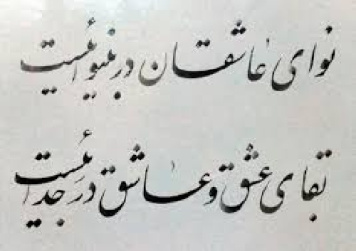 نوای عاشقان در بینوائیست
بقای عشق و عاشق در جدائیست